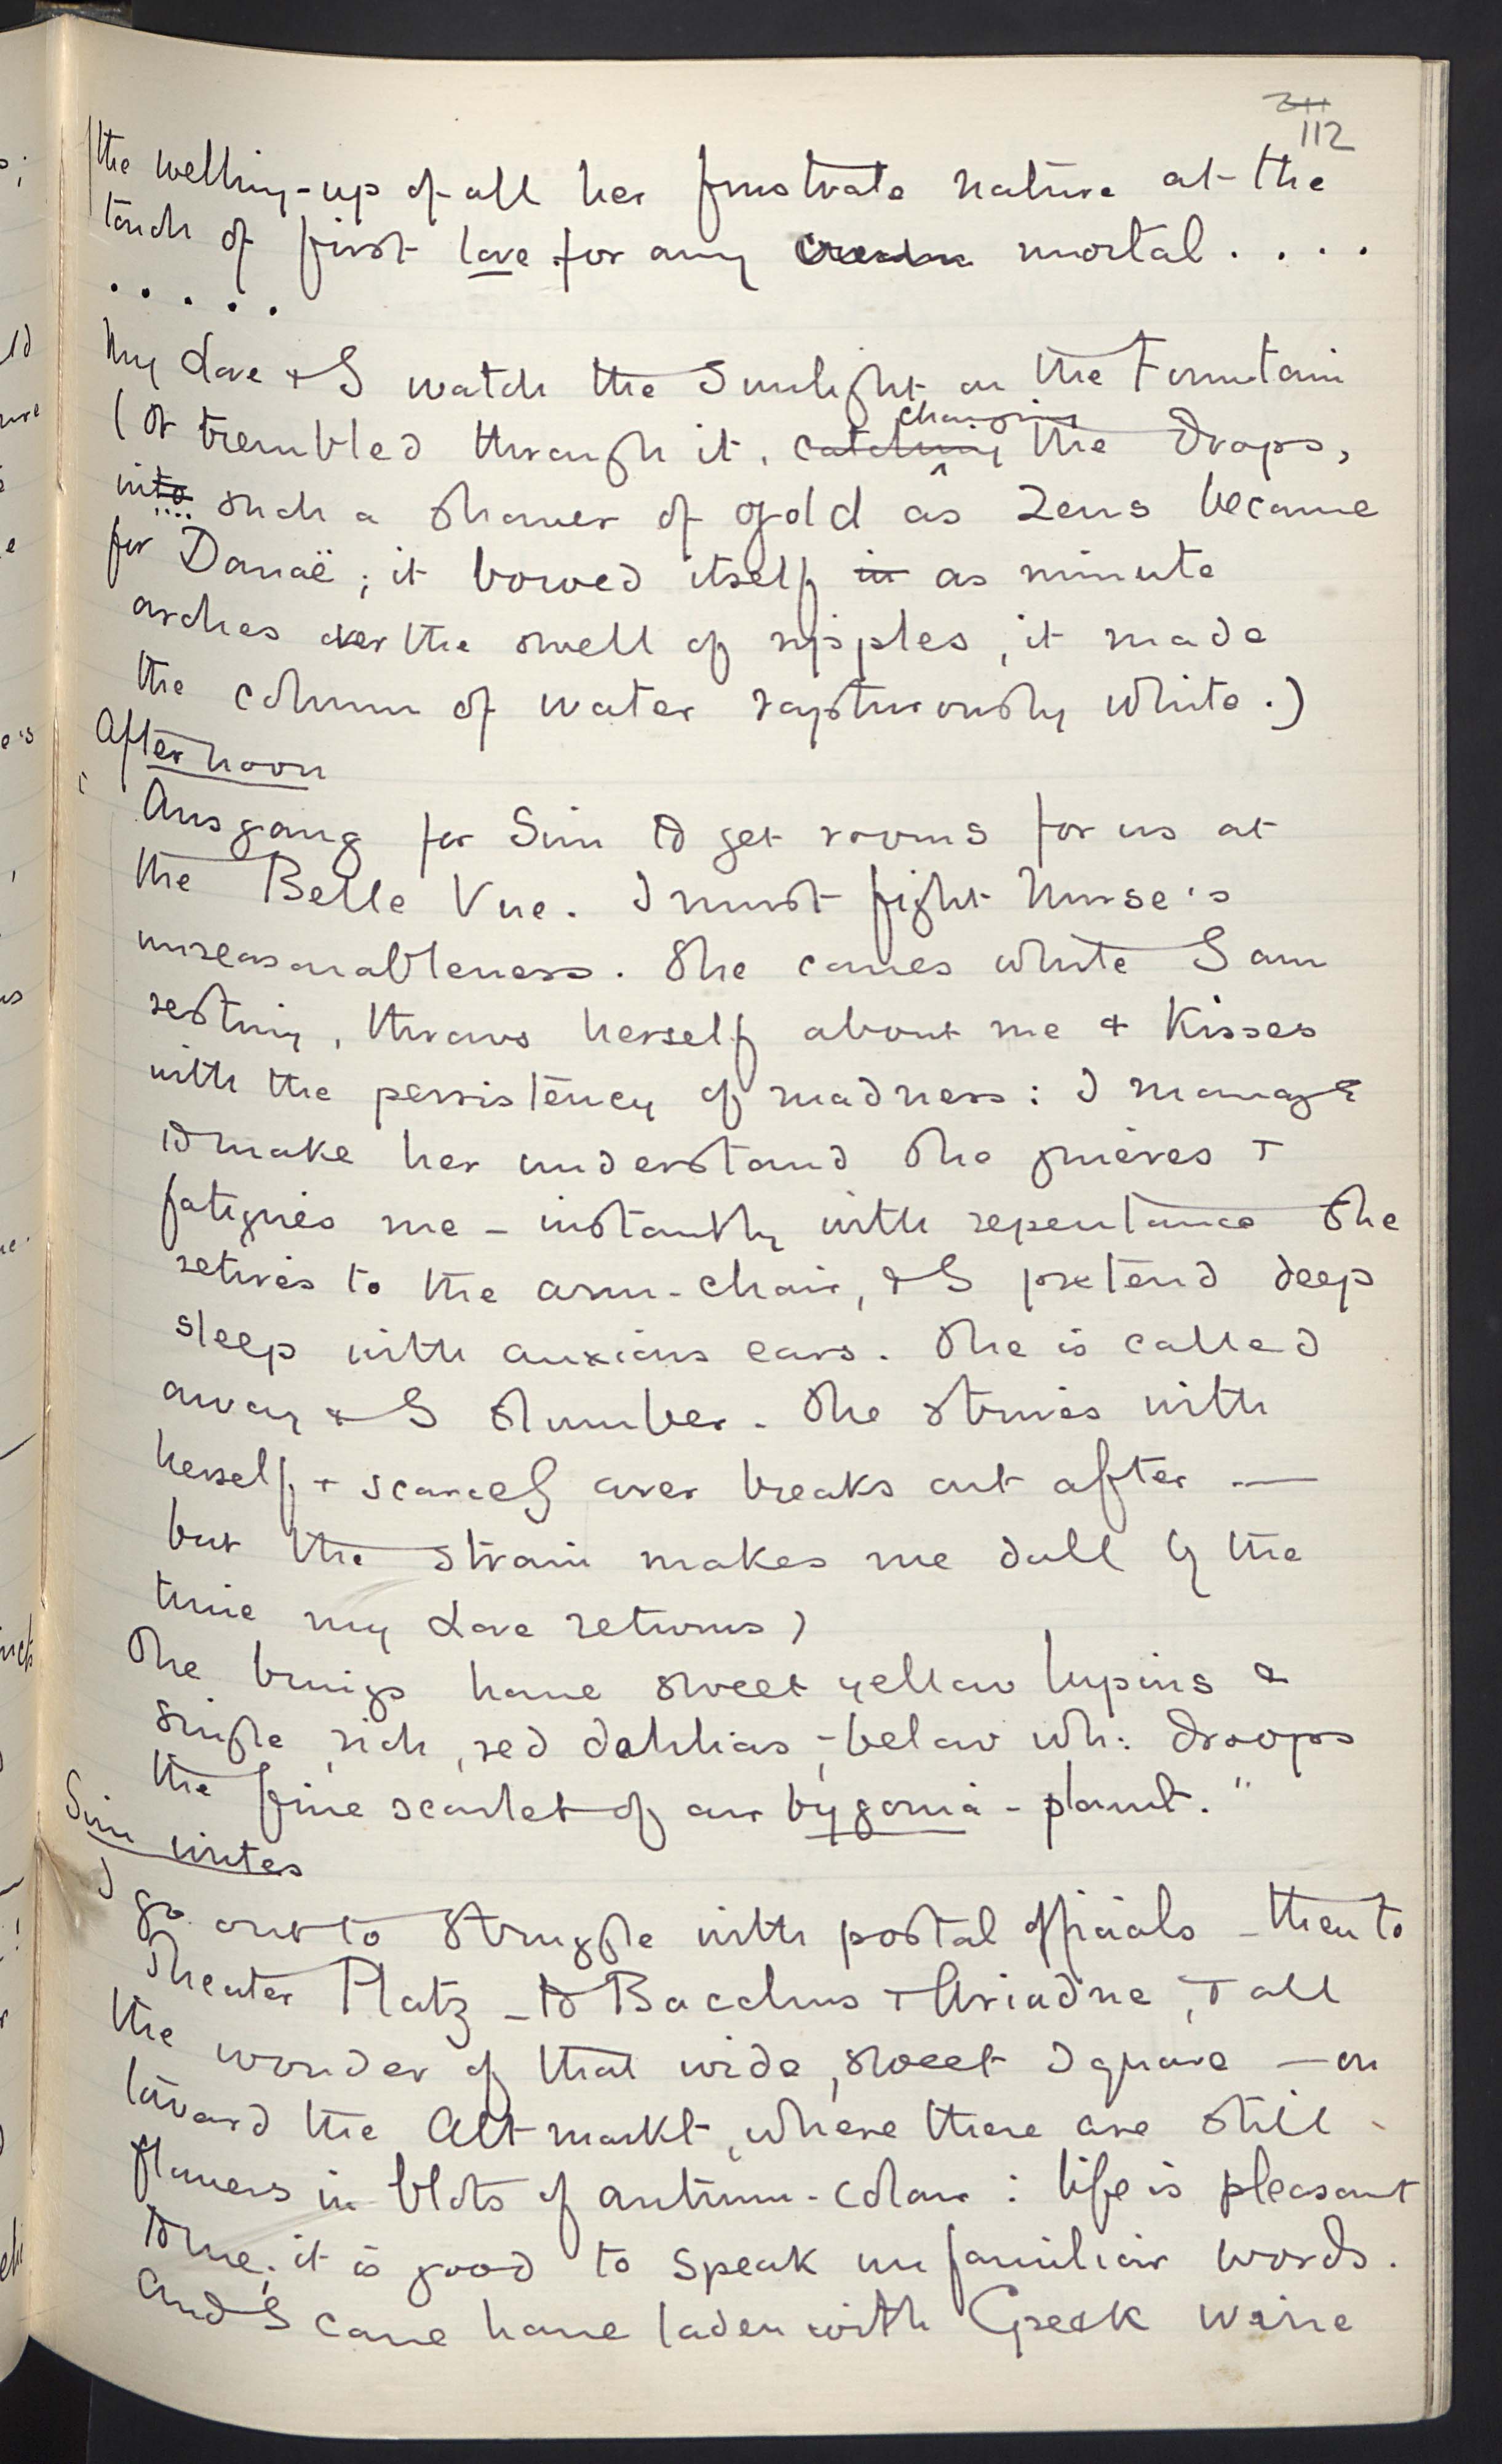 112
the welling-up of all her frustrate nature at the
touch of first love for any mortal . . . .
. . . . .
My Love & I watch the Sunlight on the Fountain
(It trembled through it, catching changing the drops,
into such a shower of gold as Zeus became
for Danaë; it bowed itself in as minute
arches over the swell of ripples, it made
the column of water rapturously white.)
Afternoon
Ausgang for Sim to get rooms for us at
the Belle Vue. I must fight Nurse's
unreasonableness. She comes while I am
resting, throws herself about me & kisses
with the persistency of madness: I manage
to make her understand she grieves +
fatigues me – instantly with repentance she
retires to the arm-chair, & I pretend deep
sleep with anxious ears. She is called
away & I slumber. She strives with
herself + scarcely ever breaks out after —
but the strain makes me dull by the
time my Love returns)
She brings home sweet yellow lupins &
single, rich, red dahlias,– below wh: droops
the fine scarlet of our bygonia-plant."
Sim writes
I go out to struggle with postal officials – then to
Theater Platz – to Bacchus + Ariadne, + all
the wonder of that wide, sweet Square – on
toward the Altmarkt, where there are still
flowers in blots of autumn-colour: life is pleasant
to me; it is good to speak unfamiliar words.
And I came home laden with Greek wine